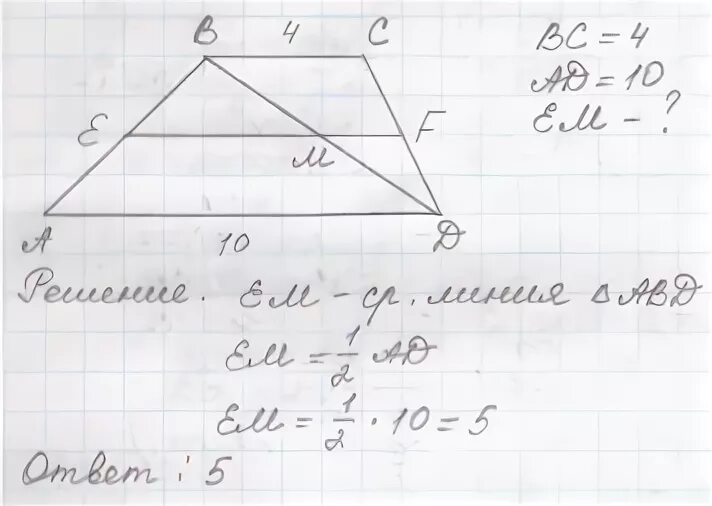 B 4 C
BC = 4
AD = 10
EM - ?
E M F
A 10 D
Решение. EM - ср. линия △ ABD
EM = 1/2 AD
EM = 1/2 · 10 = 5
Ответ : 5